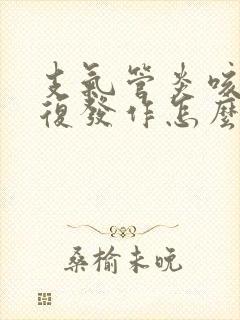 支氣管炎咳
復發作怎麼
桑榆未晚